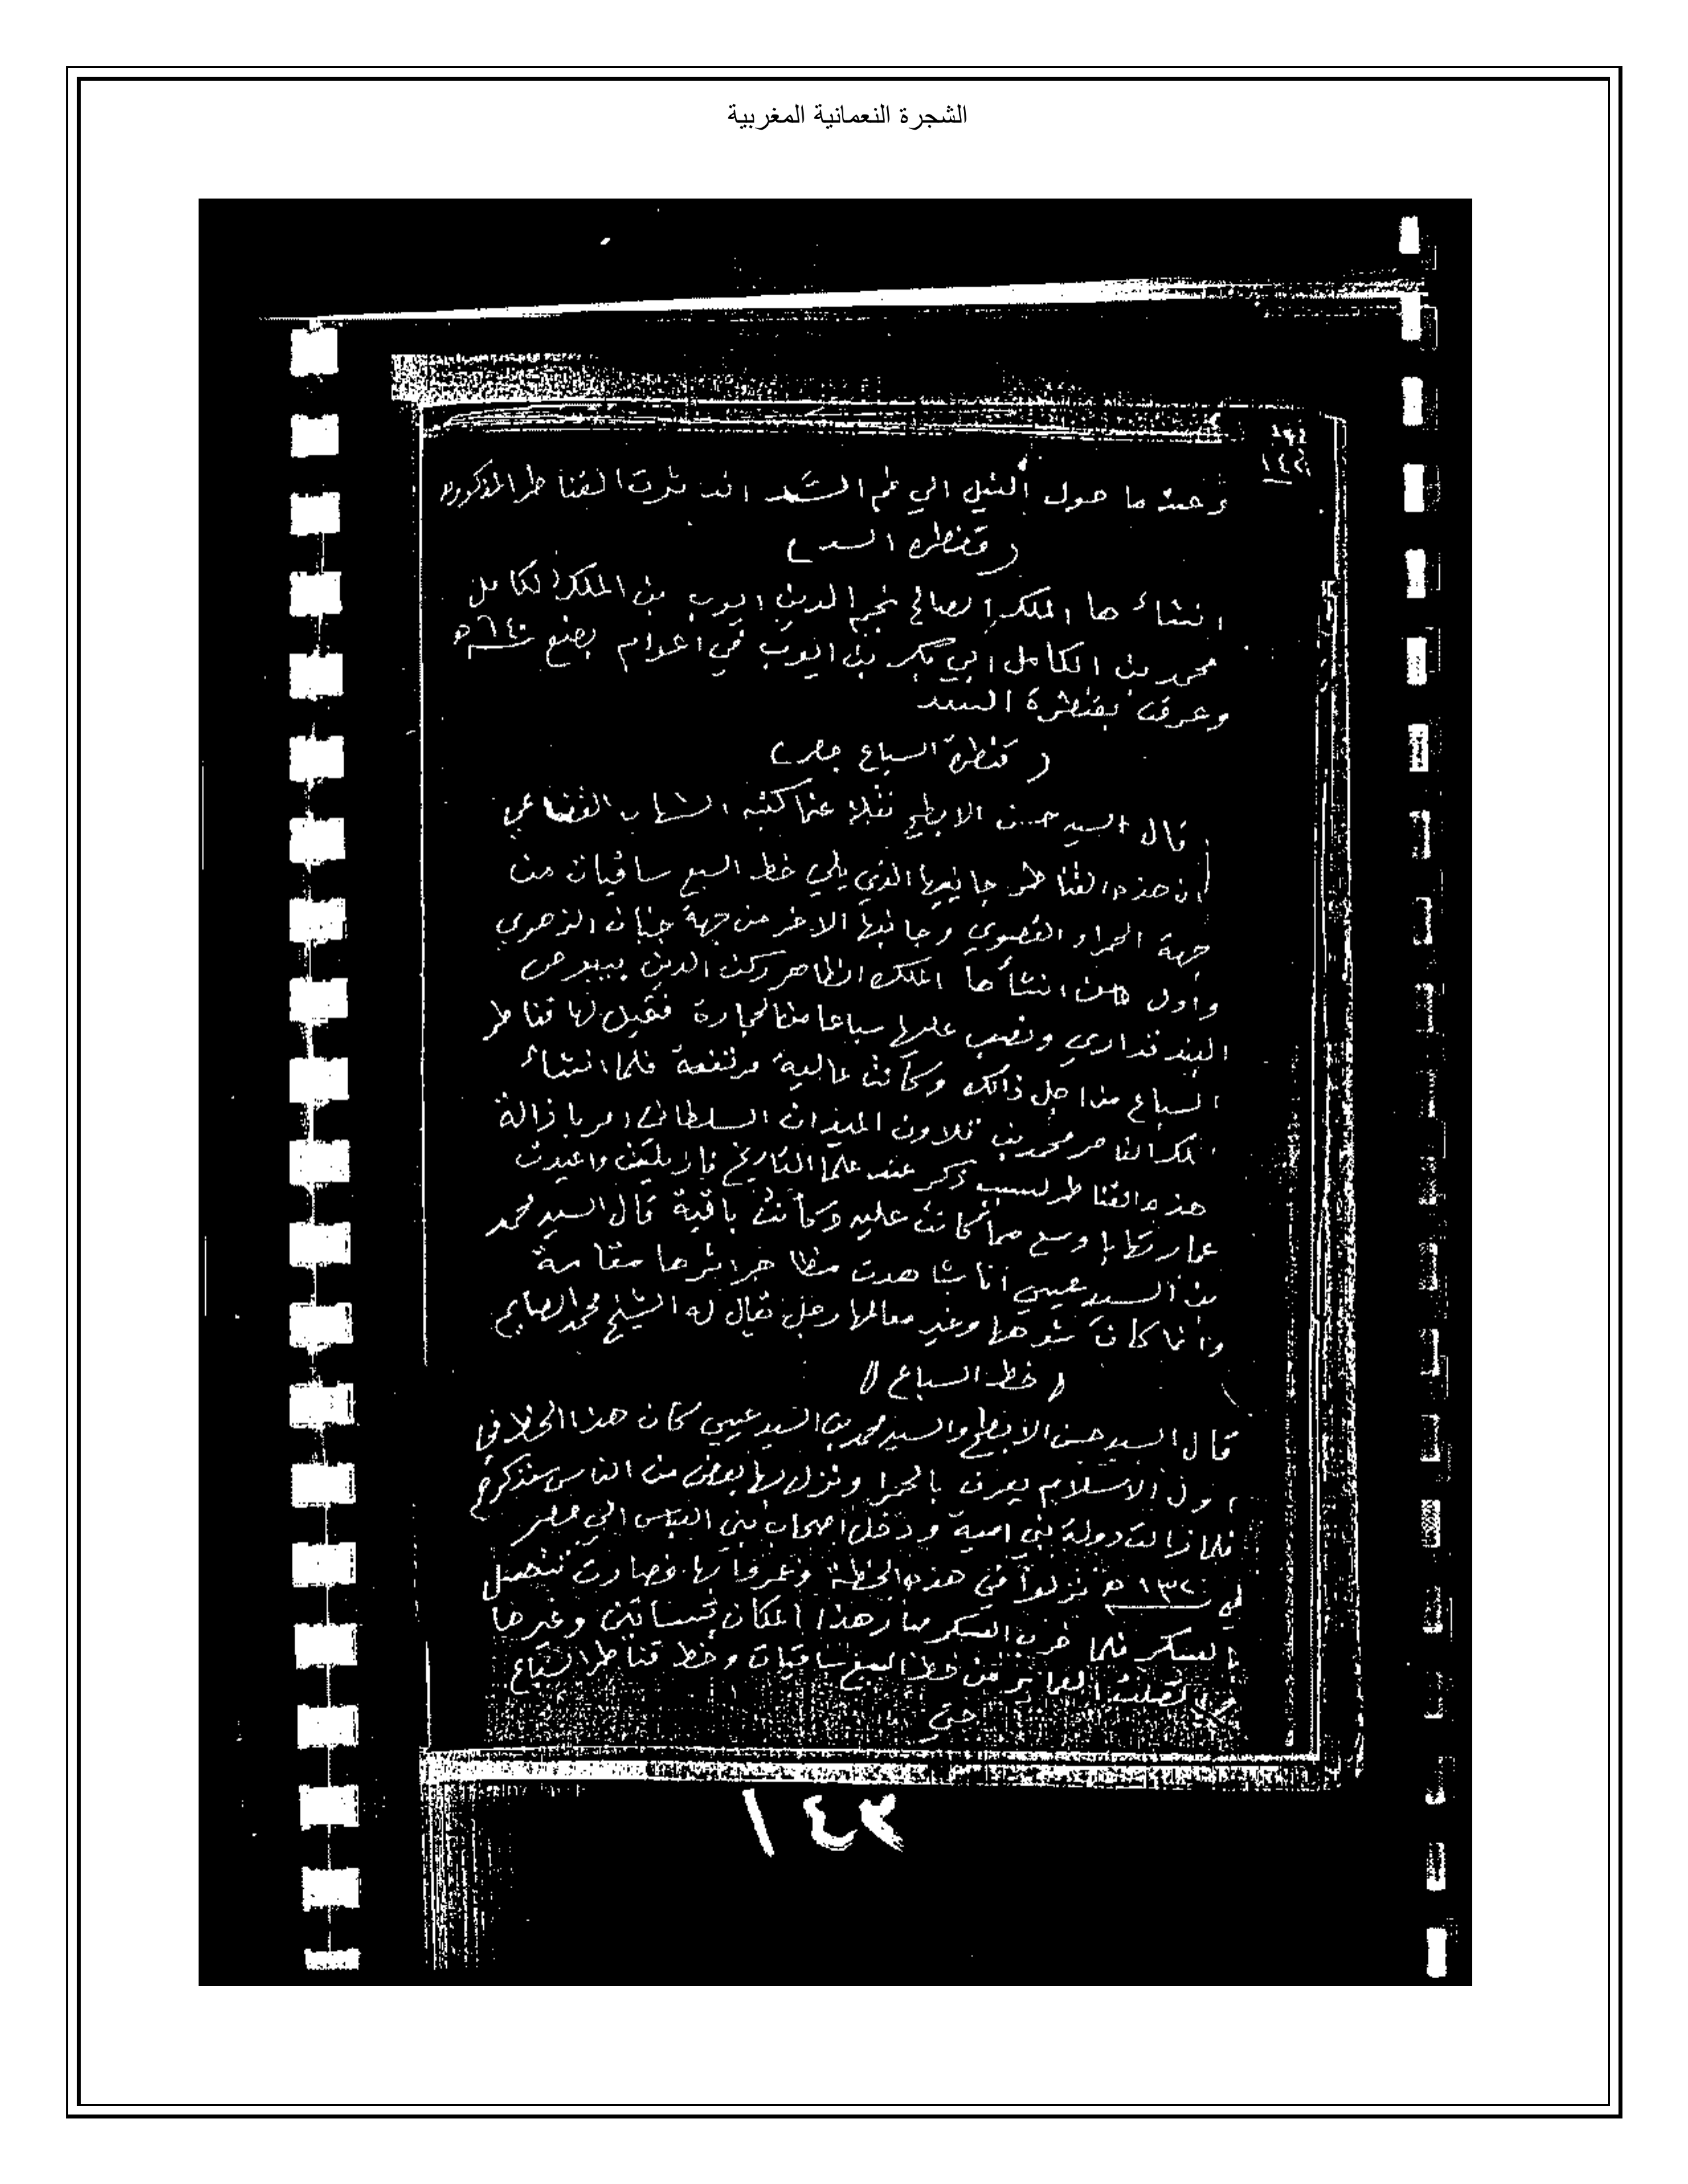 الشجرة النعمانية المغربية
١٤٢
وعنه ما حول النيل الي فم السد اندثرت القناطر المذكورة
(قنطره السد)
انشاء ها الملك الصالح نجم الدين ايوب بن الملك الكامل
محمد بن الكامل ابي بكر بن ايوب في اعوام بضع ٦٤٠ ه
وعرفت بقنطرة السد
(قنطرة السباع بمصر)
قال السيد حسن الابطح نقلا عما كتبه الشهاب القضاعي
ان هذه القناطر جانبها الذي يلي خط السبع ساقيات من
جهة الحمراء القصوي وجانبها الاخر من جهة جنان الزهري
واول من انشأ ها الملك الظاهر ركن الدين بيبرص
البند قداري ونصب عليها سباعا من الحجارة فقيل لها قناطر
السباع من اجل ذالك وكانت عالية مرتفعة فلما انشاء
الملك الناصر محمد بن قلاون الميدان السلطاني امر با زالة
هذه القناطر لسبب ذكر عند علما التاريخ فازيلت واعيدت
عمارتها با وسع مما كانت عليه وكانت باقية قال السيد محمد
بن السيد عيسي انا شاهدت مظا هر اثرها مقامة
وانما كان شوهها وغير معالمها رجل يقال له الشيخ محمد الصايم
(خط السباع)
قال السيد حسن الابطح والسيد محمد بن السيد عيسي كان هذا الخط في
اول الاسلام يعرف بالحمرا ونزل بها بعض من الناس سنذكرهم
فلما زالت دولة بني امية ودخل اصحاب بني العباس الي مصر
في ١٣٢ ه نزلوا في هذه الخطة وعمروا بها فصارت تتصل
بالعسكر فلما خرب العسكر صار هذا المكان بساتين وغيرها
اتصلت العماير من خط السبع ساقيات وخط قناطر السباع
حتى
١٤٢